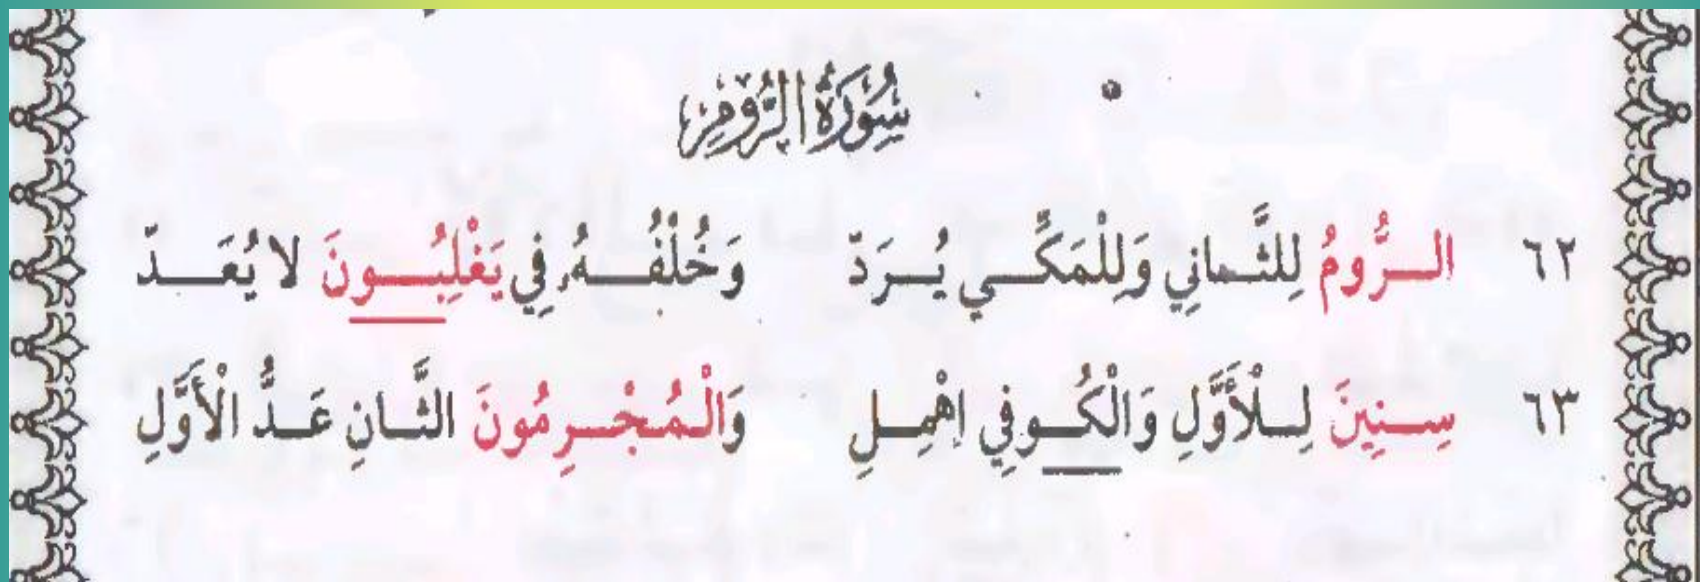 سُورَةُ الرُّومِ
٦٢ الــرُّومُ لِلثَّــانِي وَلِلْمَكِّــي يُــرَدّ وَخُلْفُــهُ فِي يَغْلِبُــونَ لا يُعَــدّ
٦٣ سِــنِينَ لِــلْأَوَّلِ وَالْكُــوفِي اهْمِــلِ وَالْـمُـجْــرِمُونَ الثَّــانِ عَــدُّ الْأَوَّلِ